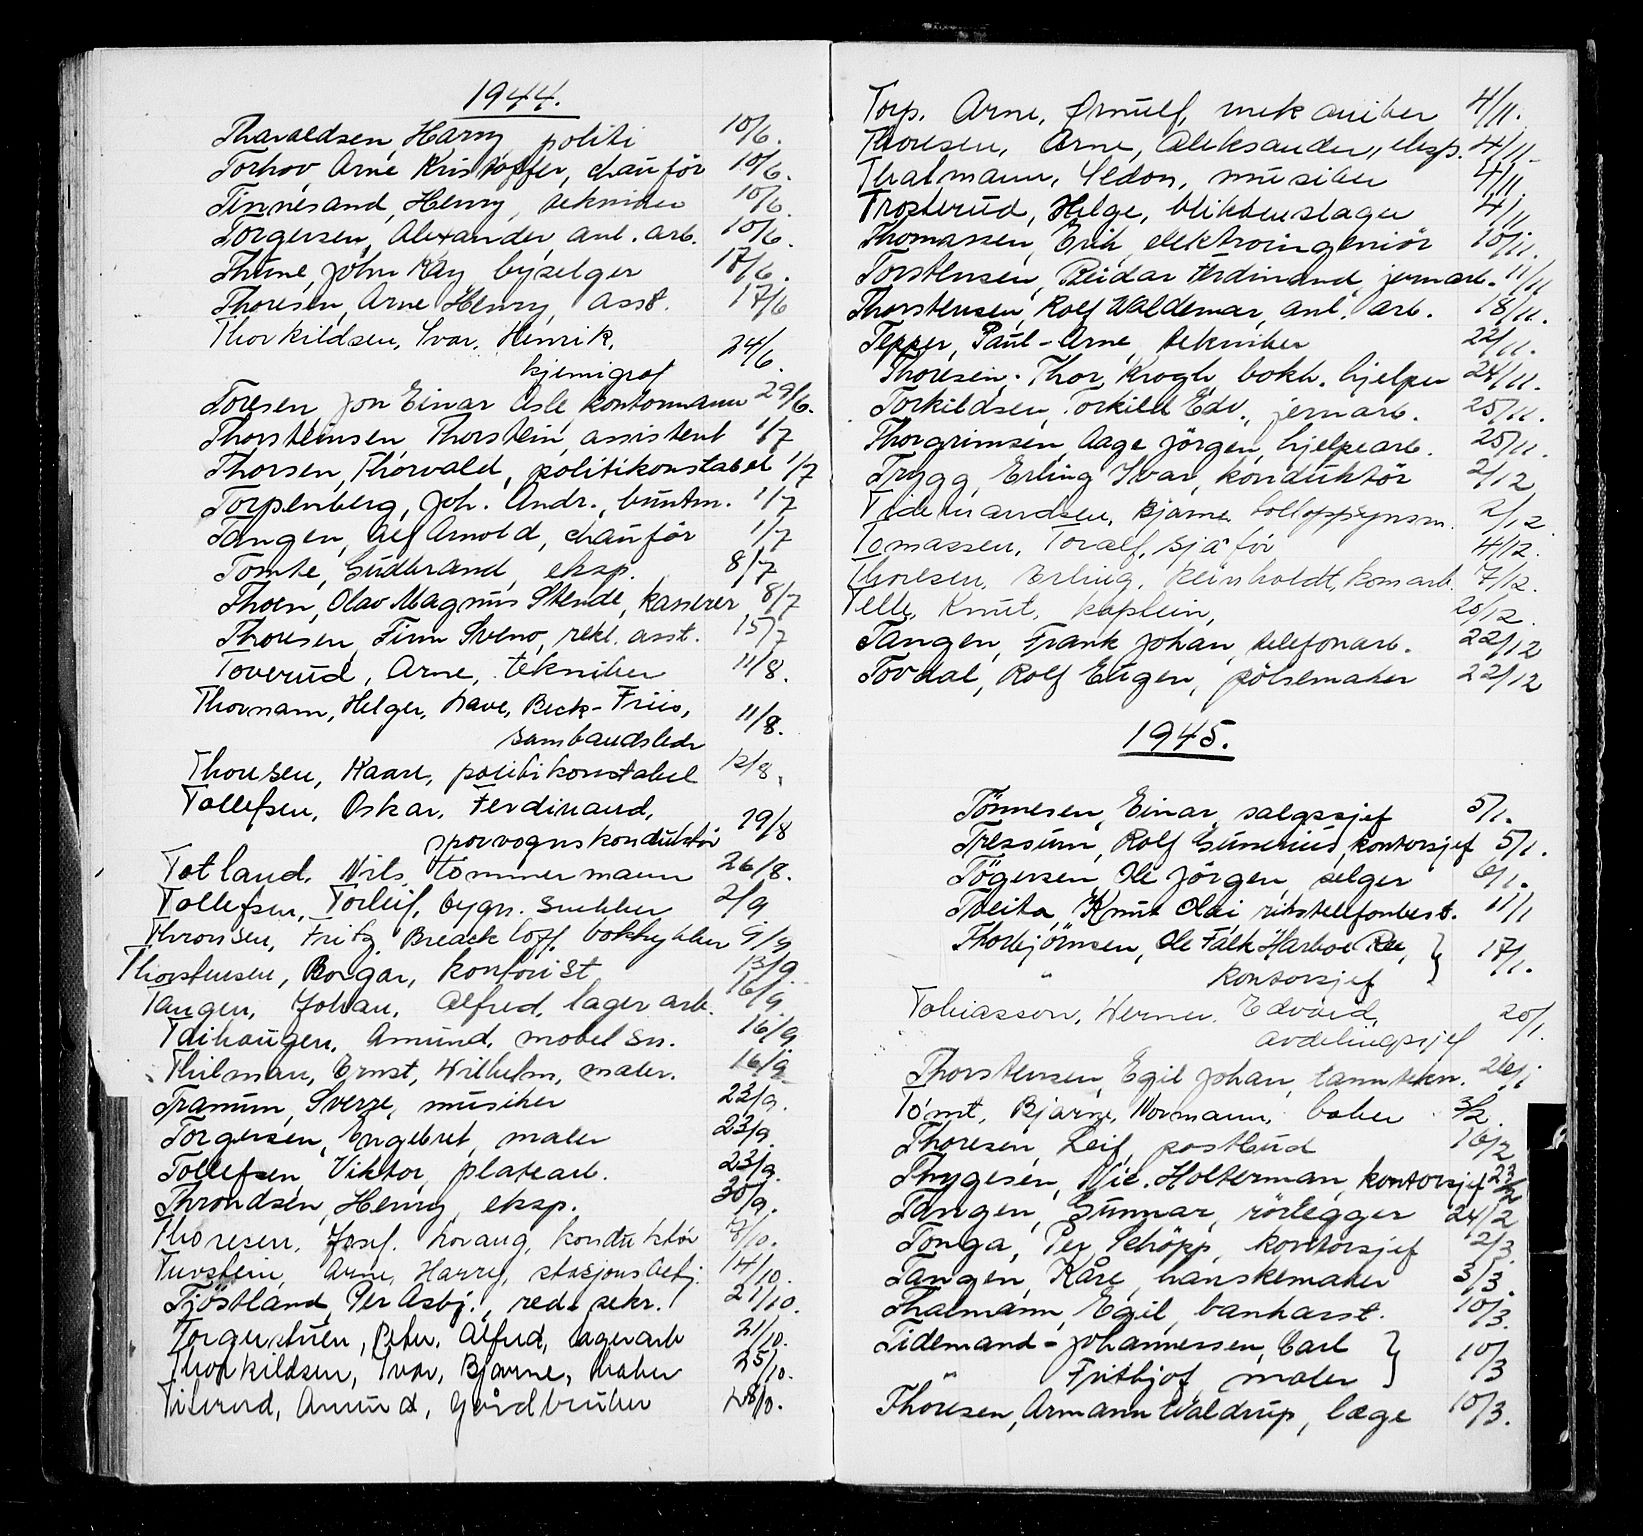 1944.
Tharaldsen, Harry, politi 10/6.
Torhov, Arne Kristoffer, chauför 10/6.
Tinnesand, Henry, tekniker 10/6.
Torgersen, Alexander anl. arb. 10/6.
Thune, John Kay byselger 17/6.
Thoresen, Arne Henry, ass8. 17/6
Thorkildsen, Ivar, Henrik,
kjemigraf 24/6.
Toresen, Jon Einar Asle kontormann 29/6.
Thorsteinsen, Thorstein, assistent 1/7
Thorsen, Thorvald, politikonstabel 1/7
Torpenberg, Joh. Andr., buntm. 1/7
Tangen, Alf Arnold, chauför 1/7
Tomte, Gudbrand, eksp. 8/7
Thoen, Olav Magnus Stende, kasserer 8/7
Thoresen, Finn Sveno, rekl. asst. 15/7
Toverud, Arne, tekniker 11/8.
Thornam, Helger, Lave, Beck-Friis,
sambandsledr 11/8.
Thoresen, Kaare, politikonstabel 12/8.
Tollefsen, Oskar, Ferdinand,
sporvognskonduktör 19/8
Totland, Nils, tömmermann 26/8.
Tollefsen, Torleif, bygn. snekker 2/9.
Thronsen, Fritz, Breack Loff, boktrykker 9/9
Thorstensen, Borgar, kontorist 13/9.
Tangen, Johan, Alfred, lagerarb. 16/9.
Taihaugen, Amund, mobelsn. 16/9
Thilman, Ernst, Wilhelm, maler. 16/9
Tranum, Sverre, musiker 23/9.
Torgersen, Engebret, maler 23/9.
Tollefsen, Viktor, platearb. 23/9.
Throndsen, Henry, eksp. 30/9.
Thoresen, Josef, Lorang, konduktör 7/10.
Tuvstein, Arne, Harry, stasjonsbetj. 14/10.
Tjöstland, Per Asbj., red. sekr. 21/10.
Torgerstuen, Peter, Alfred, lagerarb 21/10.
Thorkildsen, Ivar, Bjarne, maker 25/10.
Tilerud, Amund, gårdbruker 28/10.
Torp, Arne, Ørnulf, mekaniker 4/11.
Thoresen, Arne, Aleksander, eksp. 4/11
Thalmann, Sedon, musiker 4/11.
Trosterud, Helge, blikkenslager 4/11
Thomassen, Erik, elektroingeniör 10/11.
Torstensen, Reidar Ferdinand, jernarb. 11/11
Thorstensen, Rolf Waldemar, anl. arb. 18/11.
Tepper, Paul-Arne, tekniker 22/11.
Thoresen, Thor, Krogh, bokh. hjelper 24/11.
Torkildsen, Torkild Edv., jernarb. 25/11.
Thorgrimsen, Aage Jörgen, hjelpearb. 25/11.
Trygg, Erling Ivar, konduktör 2/12
Tidemandsen, Bjarne tolloppsynsm. 2/12
Tomassen, Toralf, sjåför 4/12.
Thoresen, Erling, Reinholdt, komarb. 7/12.
Telle, Knut, kaptein, 20/12.
Tangen, Frank Johan, telefonarb. 22/12
Tovdal, Rolf Eugen, pölsemaker 22/12
1945.
Tönnesen, Einar, salgssjef 5/1.
Tressum, Rolf Gunerius, kontorsjef 5/1.
Tögersen, Ole Jörgen, selger 6/1.
Tveita, Knut Olai rikstelefonbest. 11/1
Thorbjörnsen, Ole Falk Harboe Ree,
kontorsjef 17/1.
Tobiasson, Werner, Edvard,
avdelingssjef 20/1.
Thorstensen, Egil Johan, tanntekn. 26/1
Tömt, Bjarne, Normann, baker 3/2.
Thoresen, Leif, postbud 16/2
Thygesen, Nic. Holterman, kontorsjef 23/2
Tangen, Gunnar, rörlegger 24/2
Tonga, Per Schöpp, kontorsjef 2/3.
Tangen, Kåre, hanskemaker 3/3.
Thalmann, Egil, bankasst. 10/3.
Tidemand-Johannessen, Carl
Fritbjof maler 10/3
Thoresen, Armann Waldrup, læge 10/3.